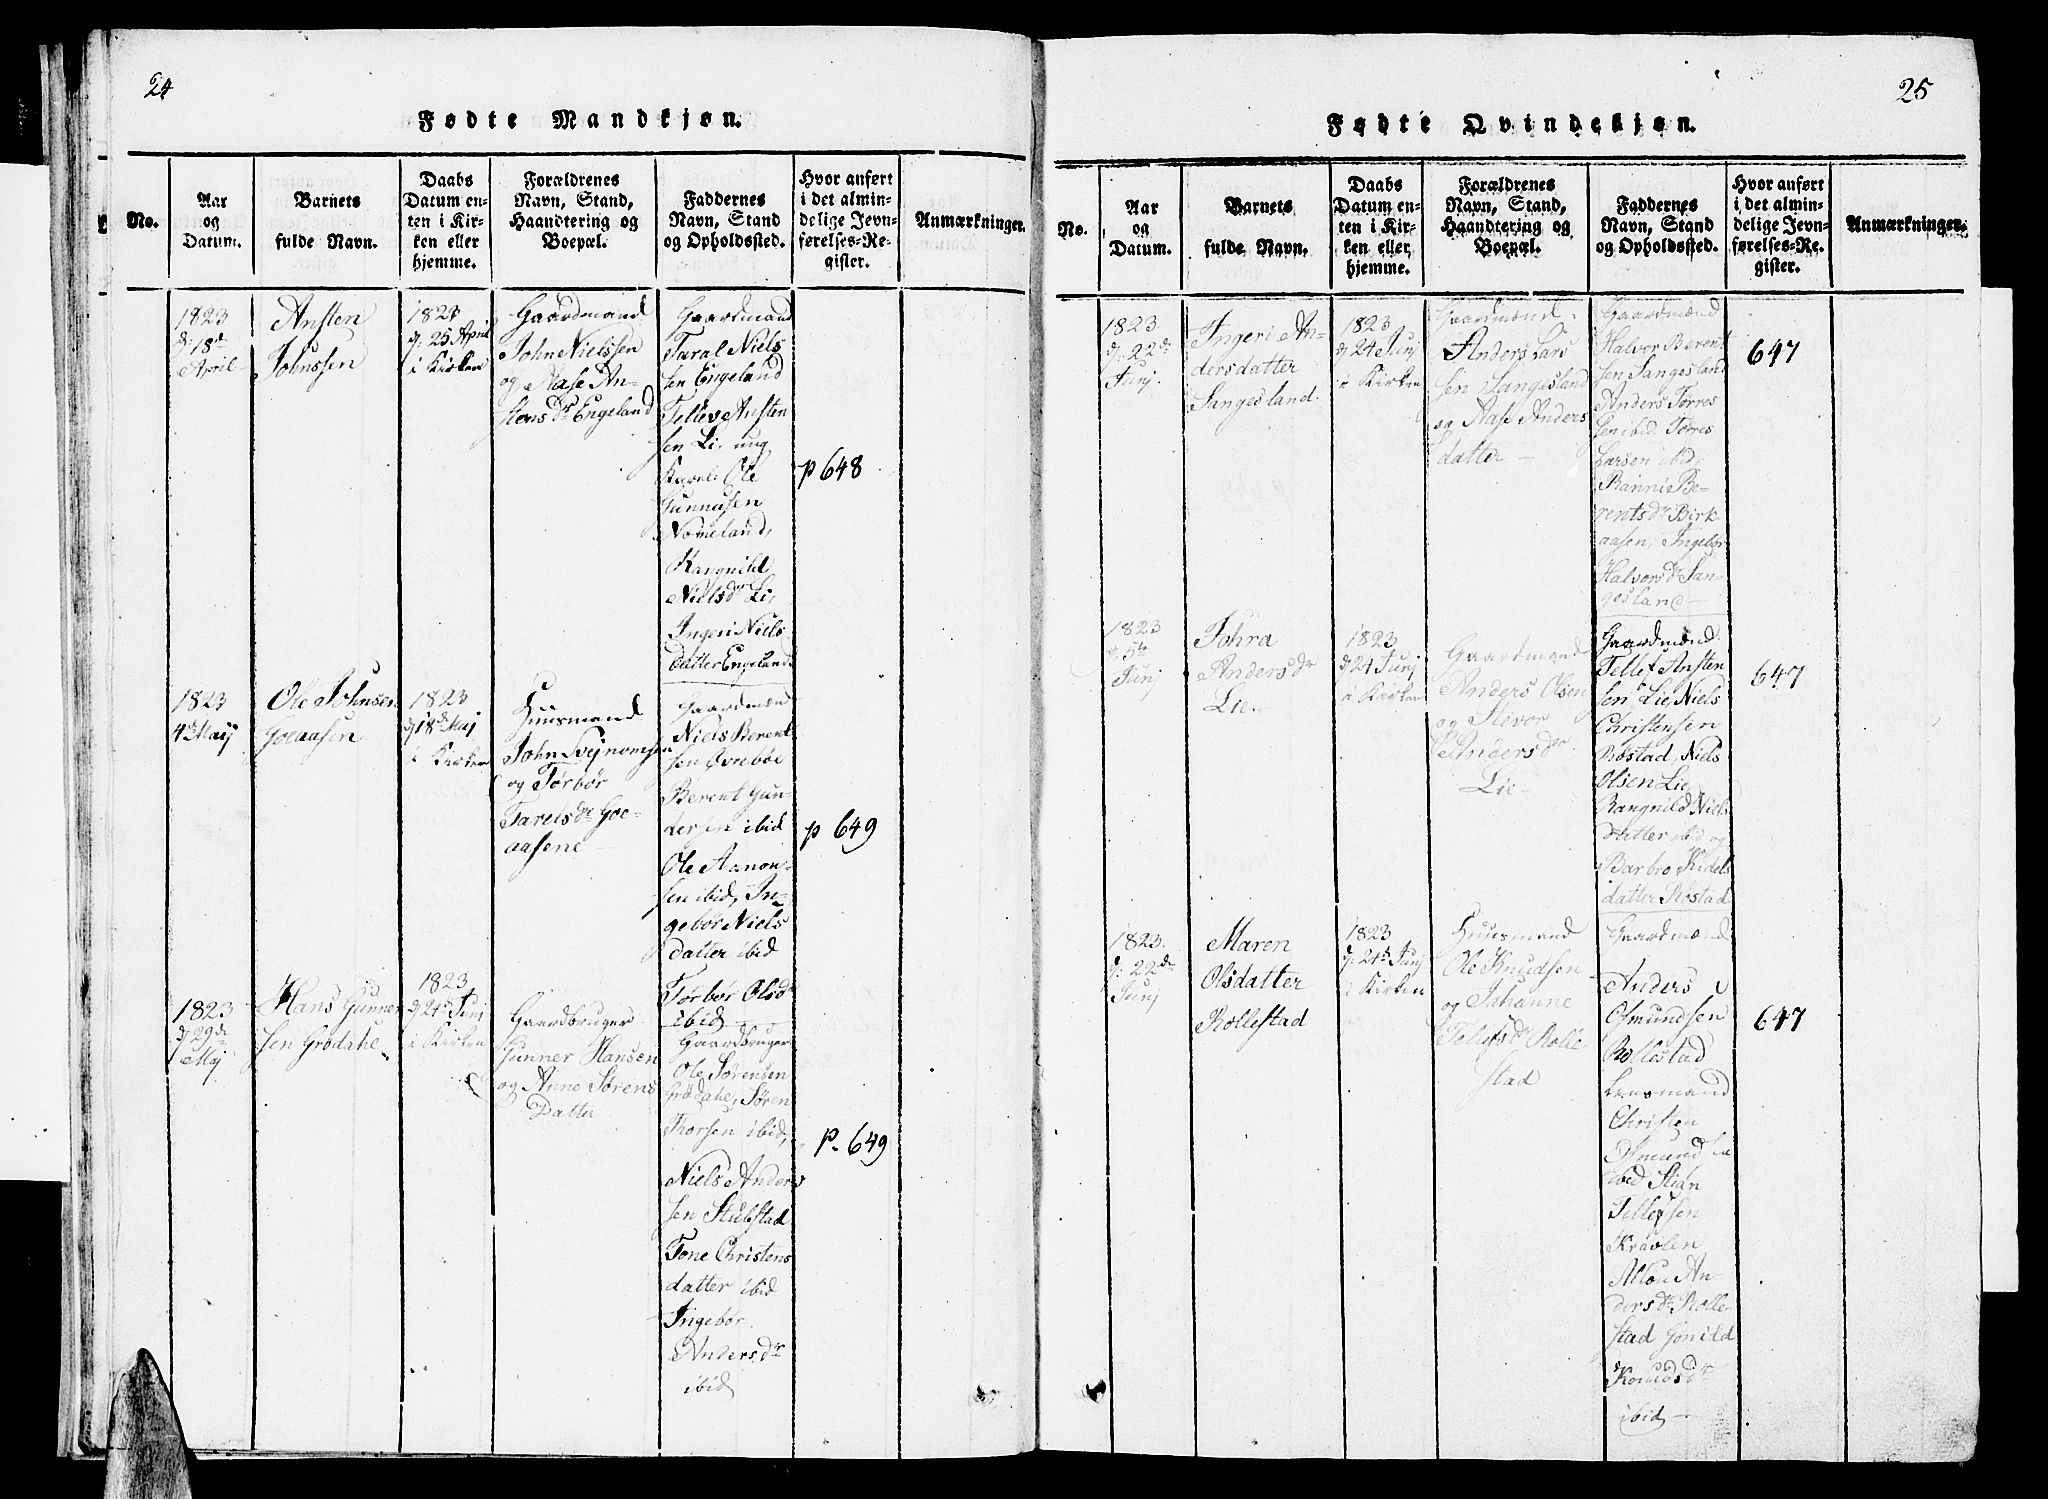 24
Fødte Mandkjøn.
No.
Aar
og
Datum.
Barnets
fulde Navn.
Daabs
Datum en-
ten i Kir-
ken eller
hjemme.
Forældrenes
Navn, Stand,
Haandtering og
Boepæl.
Faddernes
Navn, Stand
og Opholdssted.
Hvor anført
i det almin-
delige Jevn-
førelses-Re-
gister.
Anmærkninger.
1823
d: 18de
April
Ansten
Johnssen
1823
d: 25 April
i Kirken
Gaardmand
John Nielssen
og Aase An-
stens dr Engeland
Gaardmand
Taral Niels
sen Engeland
Tellev Ansten
sen Li, ung
Karl: Ole
Gunnusen
Nomeland,
Rangnild
Niels dr Li,
Ingeri Niels
datter Engeland
p 648
1823
4de Maij
Ole Johnsen
Goeaasen
1823
d 18de Maj
i Kirken
Huusmand
John Svejnomsen
og Tørbør
Tarels dr Goe-
aasene
Gaardmænd
Niels Berent
sen Øvrebøe
Berent Gun-
dersen ibid
Ole Aanon-
sen ibid, In-
gebør Niels
datter ibid
Tørbør Olsdr
ibid
p 649
1823
d 29de
Mj
Hans Gunner
sen Grødahe
1823
d 24de Junj
i Kirken
Gaardbruger
Gunner Hansen
og Anne Sørens
Datter
Gaardbruger
Ole Sørensen
Grødahe, Søren
Thorsen ibid,
Niels Anders
sen Stubstad
Tone Christens
datter ibid
Ingebør
Anders dr
ibid
p. 649
25
Fødte Qvindekjøn.
No.
Aar
og
Datum.
Barnets
fulde Navn.
Daabs
Datum en-
ten i Kir-
ken eller
hjemme.
Forældrenes
Navn, Stand,
Haandtering og
Boepæl.
Faddernes
Navn, Stand
og Opholdssted.
Hvor anført
i det almin-
delige Jevn-
førelses-Re-
gister.
Anmærkninger.
1823
d. 22de
Junj.
Ingeri An-
dersdatter
Sangesland.
1823
d 24 Junj
i Kirken
Gaardmænd
Anders Lars
sen Sangesland
og Aase Anders
datter
Gaardmænd
Halvor Berent
sen Sangesland
Anders Tørres
sen ibid. Tørres
Larsen ibid,
Ranni Be-
rents dr Birk-
aasen, Ingebør
Halvors dr San-
gesland
647
1823
d. 5te
Junj
Johra
Anders dr
Lie
1823
d 24 Junj
i Kirken
Gaardmand
Anders Olsen
og Stevor
Anders dr
Lie
Gaardmænd
Tellef Ansten
sen Lie, Niels
Christensen
Røstad, Niels
Olsen Lie,
Rangnild Niels
datter ibid og
Barbro Kidels
datter Røstad
647
1823.
d: 22de
Junj
Maren
Olsdatter
Rollestad
1823
d: 24de Junj
i Kirken
Huusmand
Ole Knudsen
og Johanne
Tellefs dr Rolle
stad
Gaardmænd
Anders
Osmundsen
Rollestad
Lensmand
Christen
Osmunds
ibid Stian
Tellefsen
Kravlen
An-
ders dr Rolle
stad Gonild
Knuds dr
ibid
647